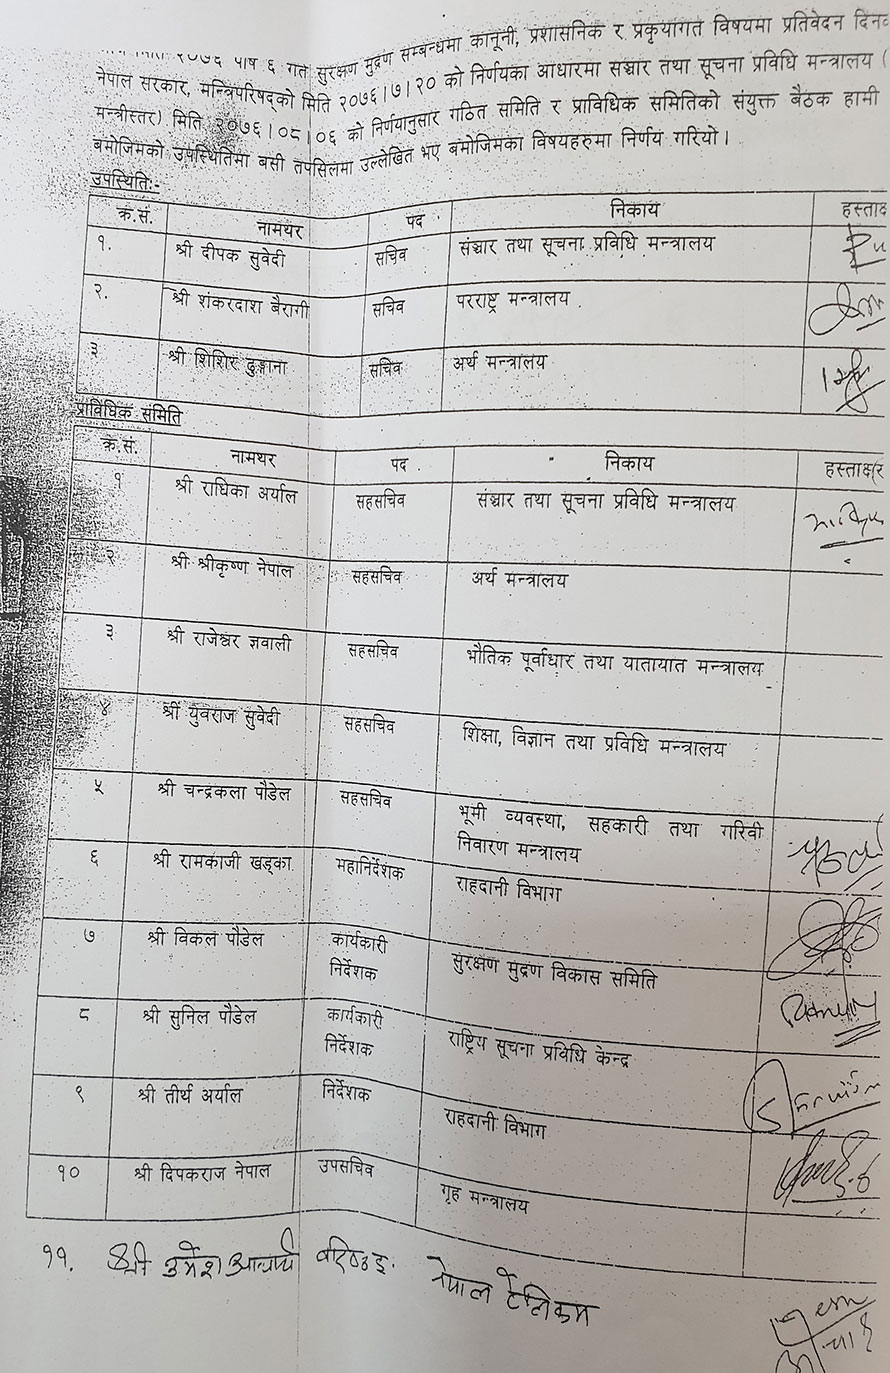 २०७६ पौष ६ गते सुरक्षण मुद्रण सम्बन्धमा कानूनी, प्रशासनिक र प्रकृयागत विषयमा प्रतिवेदन
नेपाल सरकार, मन्त्रिपरिषद्को मिति २०७६।७।२० को निर्णयका आधारमा सञ्चार तथा सूचना प्रविधि मन्त्रालय (
मन्त्रीस्तर) मिति २०७६।०८।०६ को निर्णयानुसार गठित समिति र प्राविधिक समितिको संयुक्त बैठक हामी
बमोजिमको उपस्थितिमा बसी तपसिलमा उल्लेखित भए बमोजिमका विषयहरुमा निर्णय गरियो।
उपस्थितिः-
क्र.सं. नामथर पद निकाय हस्ताक्ष
१. श्री दीपक सुवेदी सचिव संञ्चार तथा सूचना प्रविधि मन्त्रालय
२. श्री शंकरदाश बैरागी सचिव परराष्ट्र मन्त्रालय
३ श्री शिशिर ढुङ्गाना सचिव अर्थ मन्त्रालय
प्राविधिक समिति
क्र.सं. नामथर पद निकाय हस्ताक्षर
१ श्री राधिका अर्याल सहसचिव संञ्चार तथा सूचना प्रविधि मन्त्रालय
२ श्री श्रीकृष्ण नेपाल सहसचिव अर्थ मन्त्रालय
३ श्री राजेश्वर ज्ञवाली सहसचिव भौतिक पूर्वाधार तथा यातायात मन्त्रालय
४ श्री युवराज सुवेदी सहसचिव शिक्षा, विज्ञान तथा प्रविधि मन्त्रालय
५ श्री चन्द्रकला पौडेल सहसचिव भूमी व्यवस्था, सहकारी तथा गरिवी
निवारण मन्त्रालय
६ श्री रामकाजी खड्का महानिर्देशक राहदानी विभाग
७ श्री विकल पौडेल कार्यकारी
निर्देशक सुरक्षण मुद्रण विकास समिति
८ श्री सुनिल पौडेल कार्यकारी
निर्देशक राष्ट्रिय सूचना प्रविधि केन्द्र
९ श्री तीर्थ अर्याल निर्देशक राहदानी विभाग
१० श्री दिपकराज नेपाल उपसचिव गृह मन्त्रालय
११. श्री उमेश आचार्य नेपाल टेलिकम